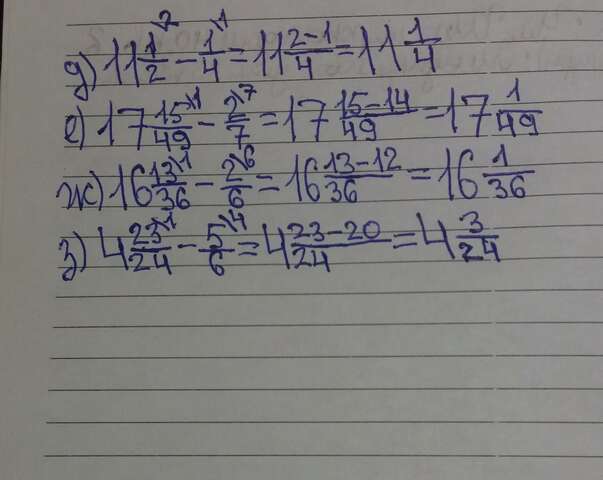 д) 11 1/2\2 − 1/4\1 = 11 2−1/4 = 11 1/4
е) 17 15/49\1 − 2/7\7 = 17 15−14/49 = 17 1/49
ж) 16 13/36\1 − 2/6\6 = 16 13−12/36 = 16 1/36
з) 4 23/24\1 − 5/6\4 = 4 23−20/24 = 4 3/24